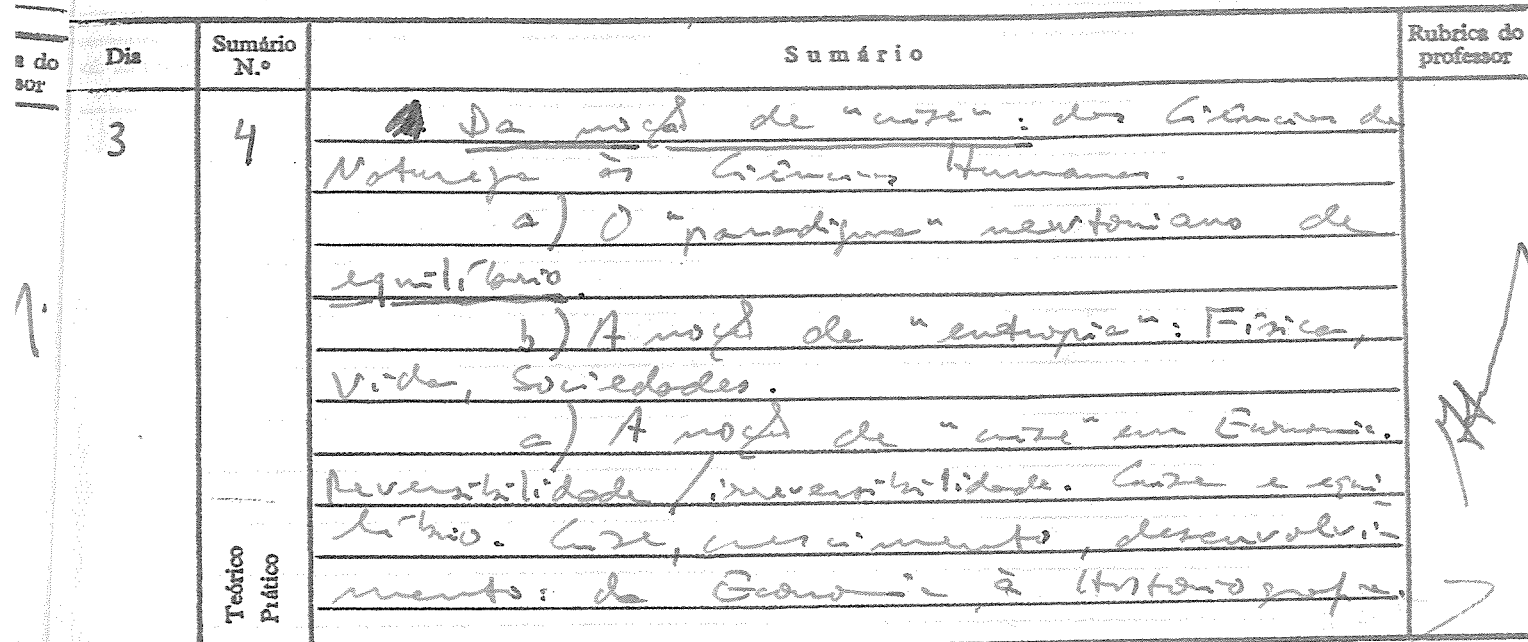 a do
sor
Dia
Sumário N.º
Sumário
Rubrica do professor
3
4
Da noção de "crise": das Ciências da
Natureza às Ciências Humanas.
a) O "paradigma" newtoniano de
equilíbrio.
b) A noção de "entropia": Física,
Vida, Sociedades.
c) A noção de "crise" em Economia.
Reversibilidade / irreversibilidade. Crise e equi
líbrio. Crise, crescimento, desenvolvi-
mento: da Economia à Historiografia.
Teórico
Prático